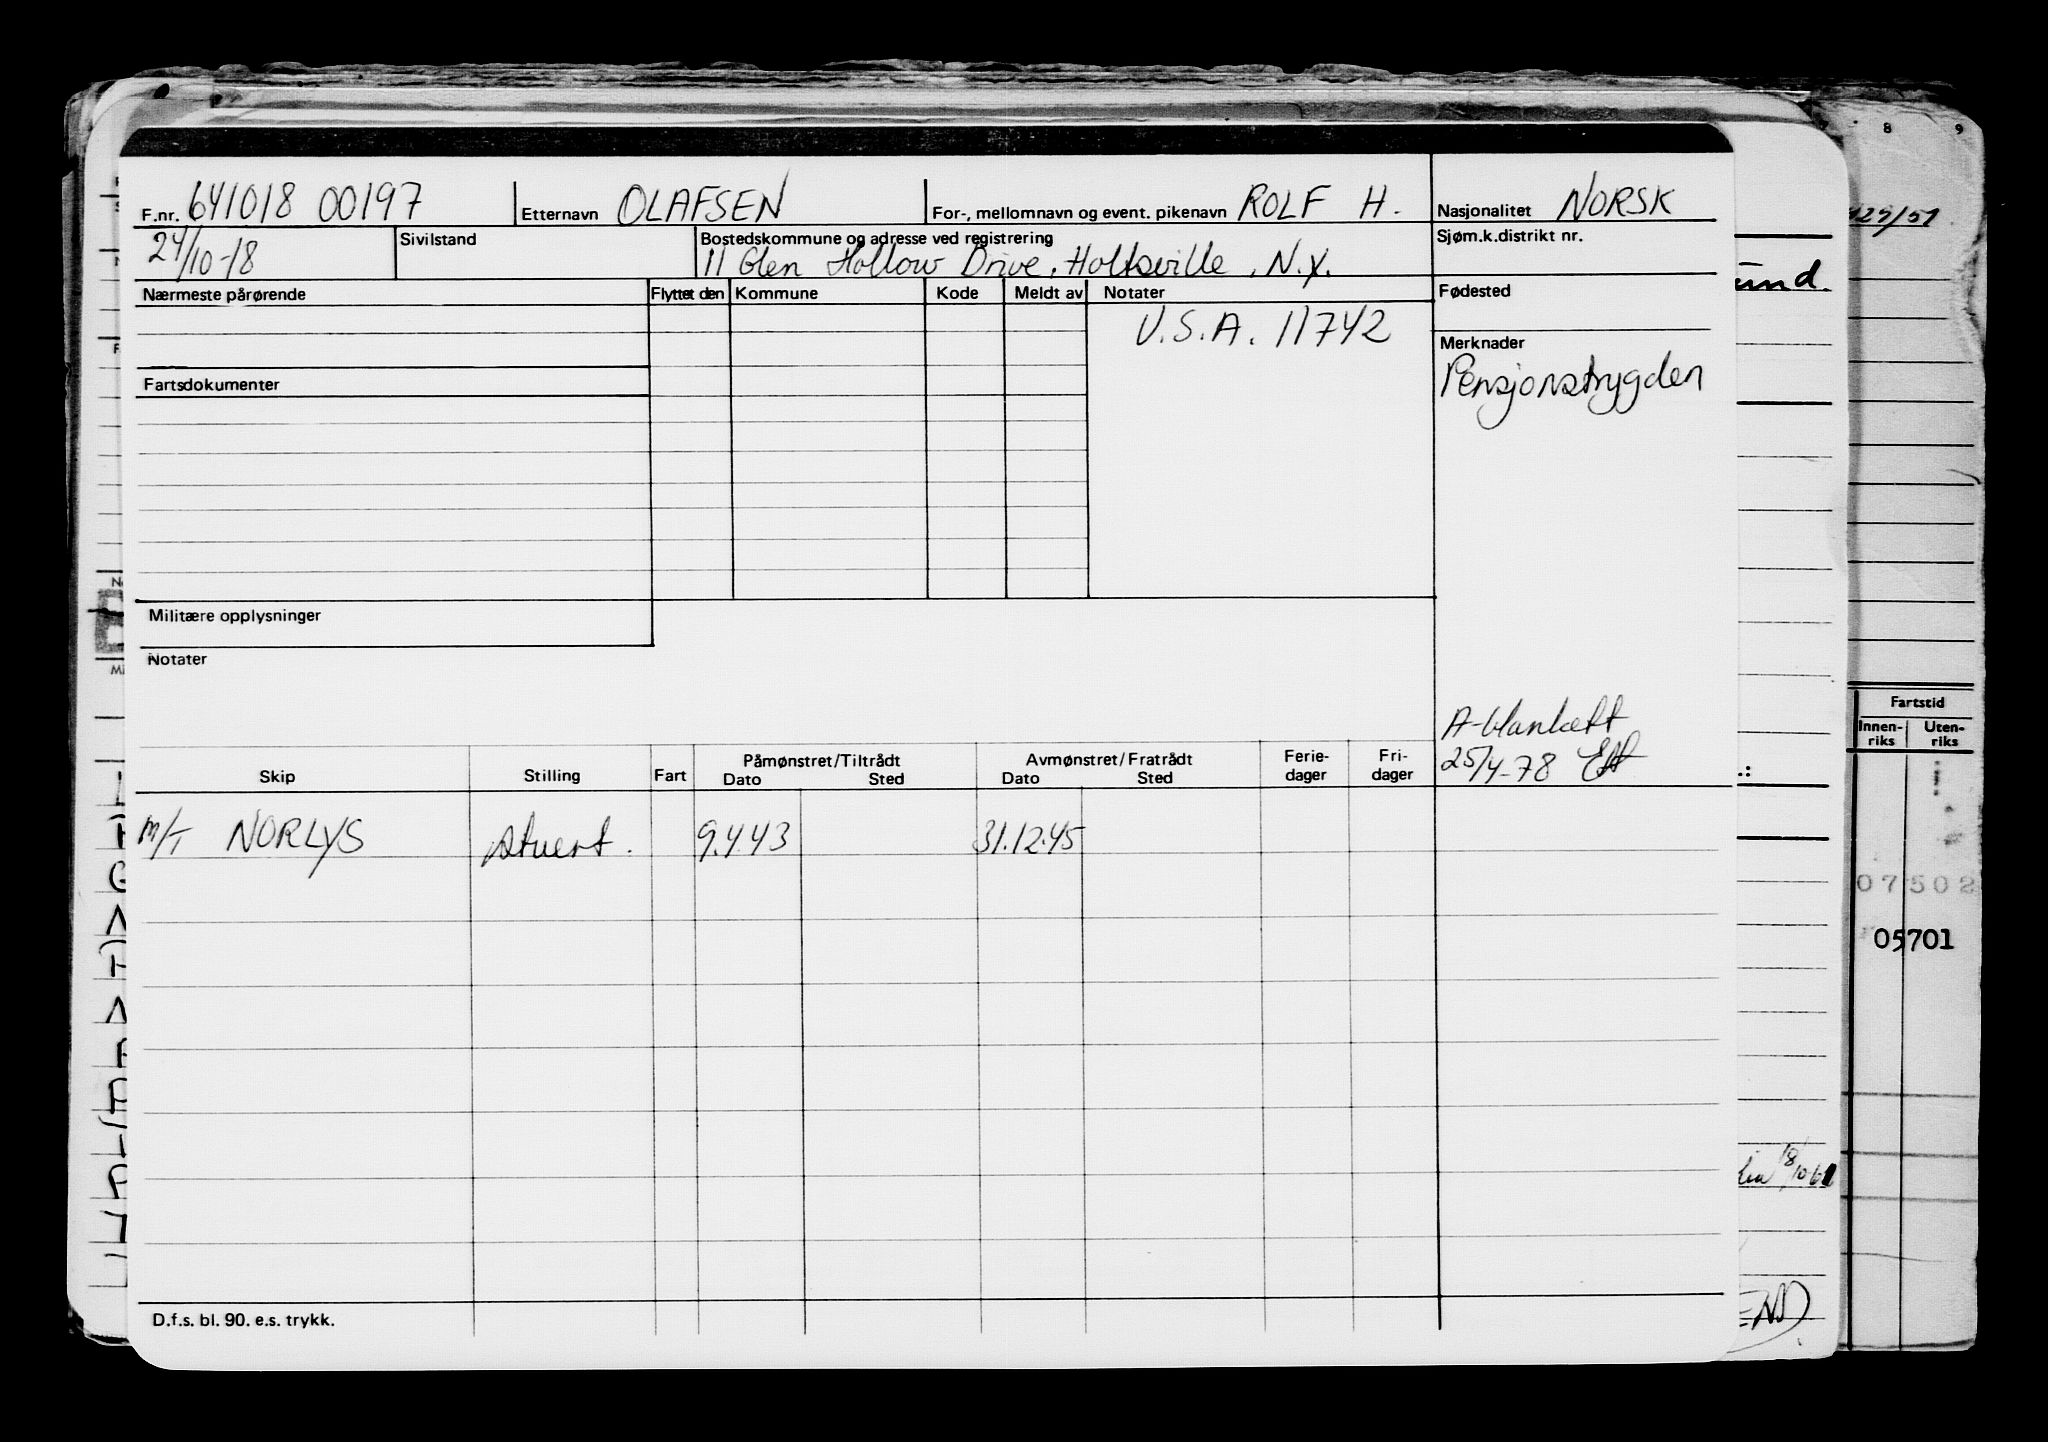 F.nr. 641018 00197 Etternavn OLAFSEN For-, mellomnavn og event. pikenavn ROLF H. Nasjonalitet NORSK
24/10-18 Sivilstand Bostedskommune og adresse ved registrering Sjøm.k.distrikt nr.
11 Glen Hollow Drive, Holtsville, N.Y.
Nærmeste pårørende Flyttet den Kommune Kode Meldt av Notater Fødested
U.S.A. 11742
Merknader
Pensjonstrygden
Fartsdokumenter
Militære opplysninger
Notater
A-blankett
25/4-78
Skip Stilling Fart Påmønstret/Tiltrådt Dato Sted Avmønstret/Fratrådt Dato Sted Ferie-dager Fri-dager
M/T NORLYS stuert. 9.4.43 31.12.45
D.f.s. bl. 90. e.s. trykk.
8 9
und.
Fartstid
Innen-riks Uten-riks
07502
05701